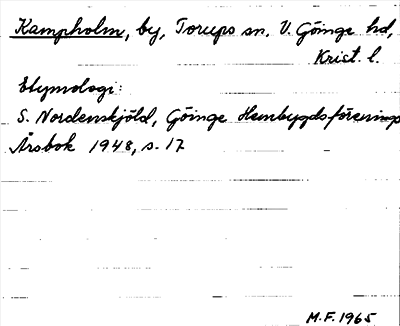 Kampholm, by, Torups sn. V. Göinge hd,
Krist. l.
Etymologi:
S. Nordenskjöld, Göinge Hembygdsförenings
Årsbok 1948, s. 17
M.F. 1965